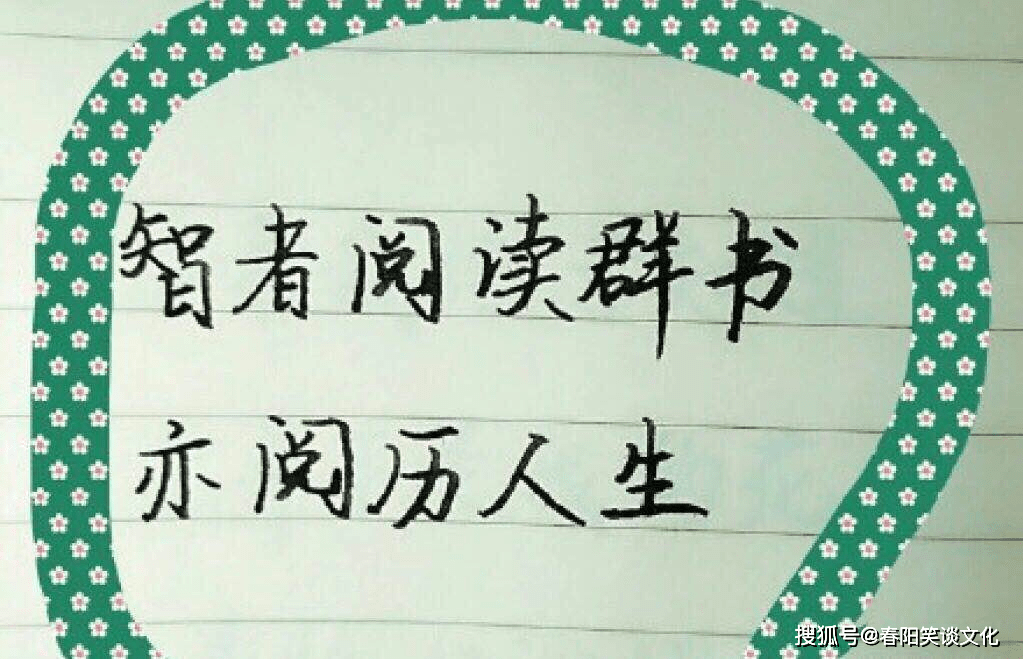 智者阅读群书
亦阅历人生
搜狐号@春阳笑谈文化